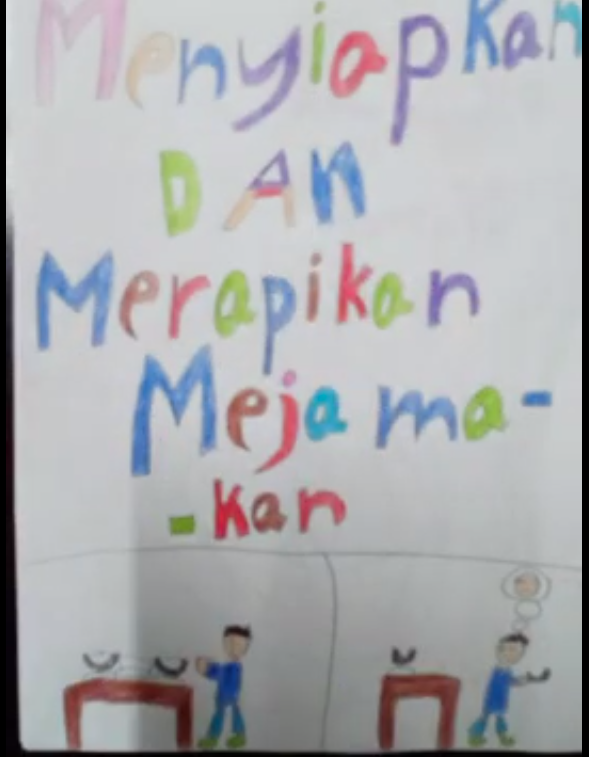 Menyiapkan
DAn
Merapikan
Meja ma-
-kan